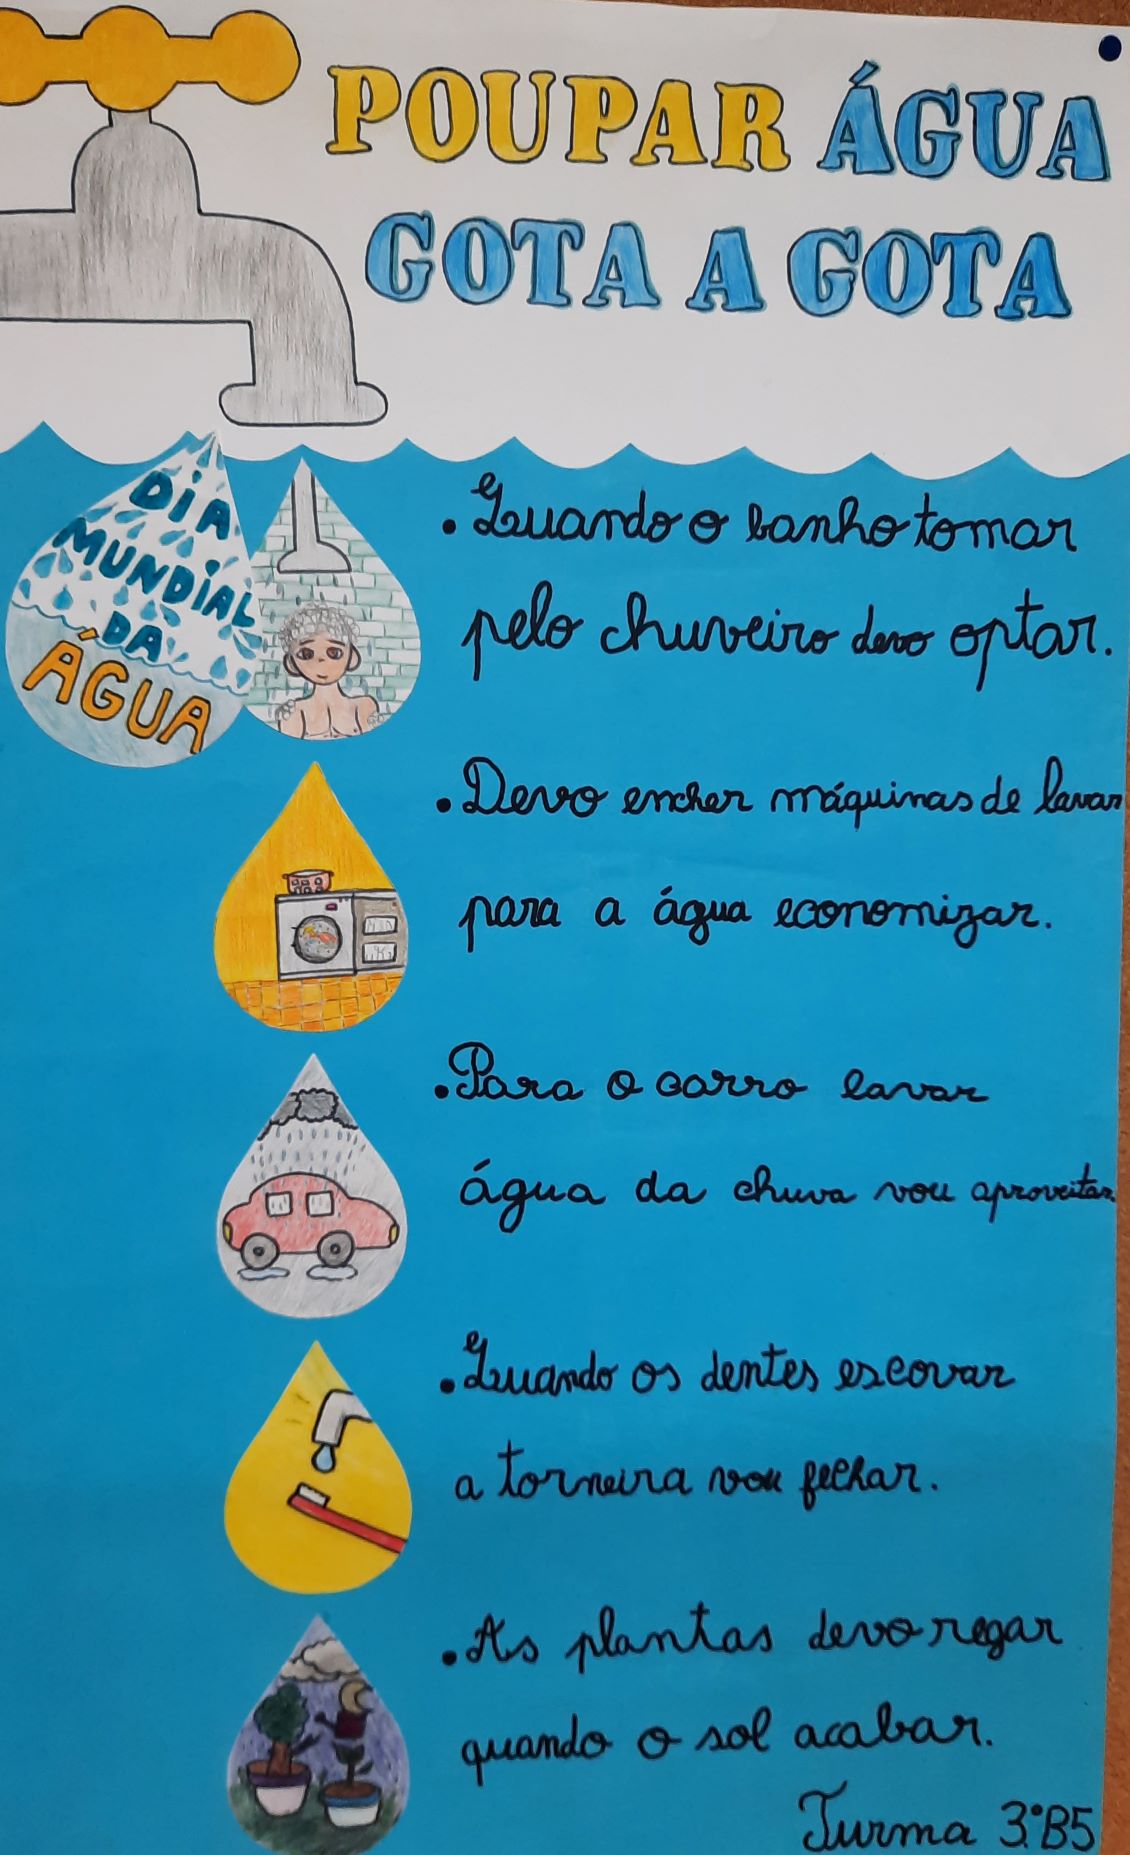 POUPAR ÁGUA
GOTA A GOTA
DIA
MUNDIAL
DA
ÁGUA
. Quando o banho tomar
pelo chuveiro devo optar.
. Devo encher máquinas de lavar
para a água economizar.
. Para o carro lavar
água da chuva vou aproveitar.
. Quando os dentes escovar
a torneira vou fechar.
. As plantas devo regar
quando o sol acabar.
Turma 3.ºB5